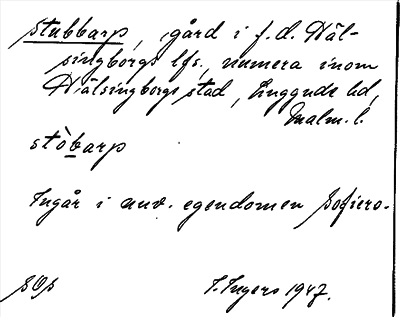 Stubbarp, gård i f.d. Häl-
singborgs lfs., numera inom
Hälsingborgs stad, Luggude hd,
Malm. l.
stòbarp
Ingår i nuv. egendomen Sofiero.
SOS I. Ingers 1947.